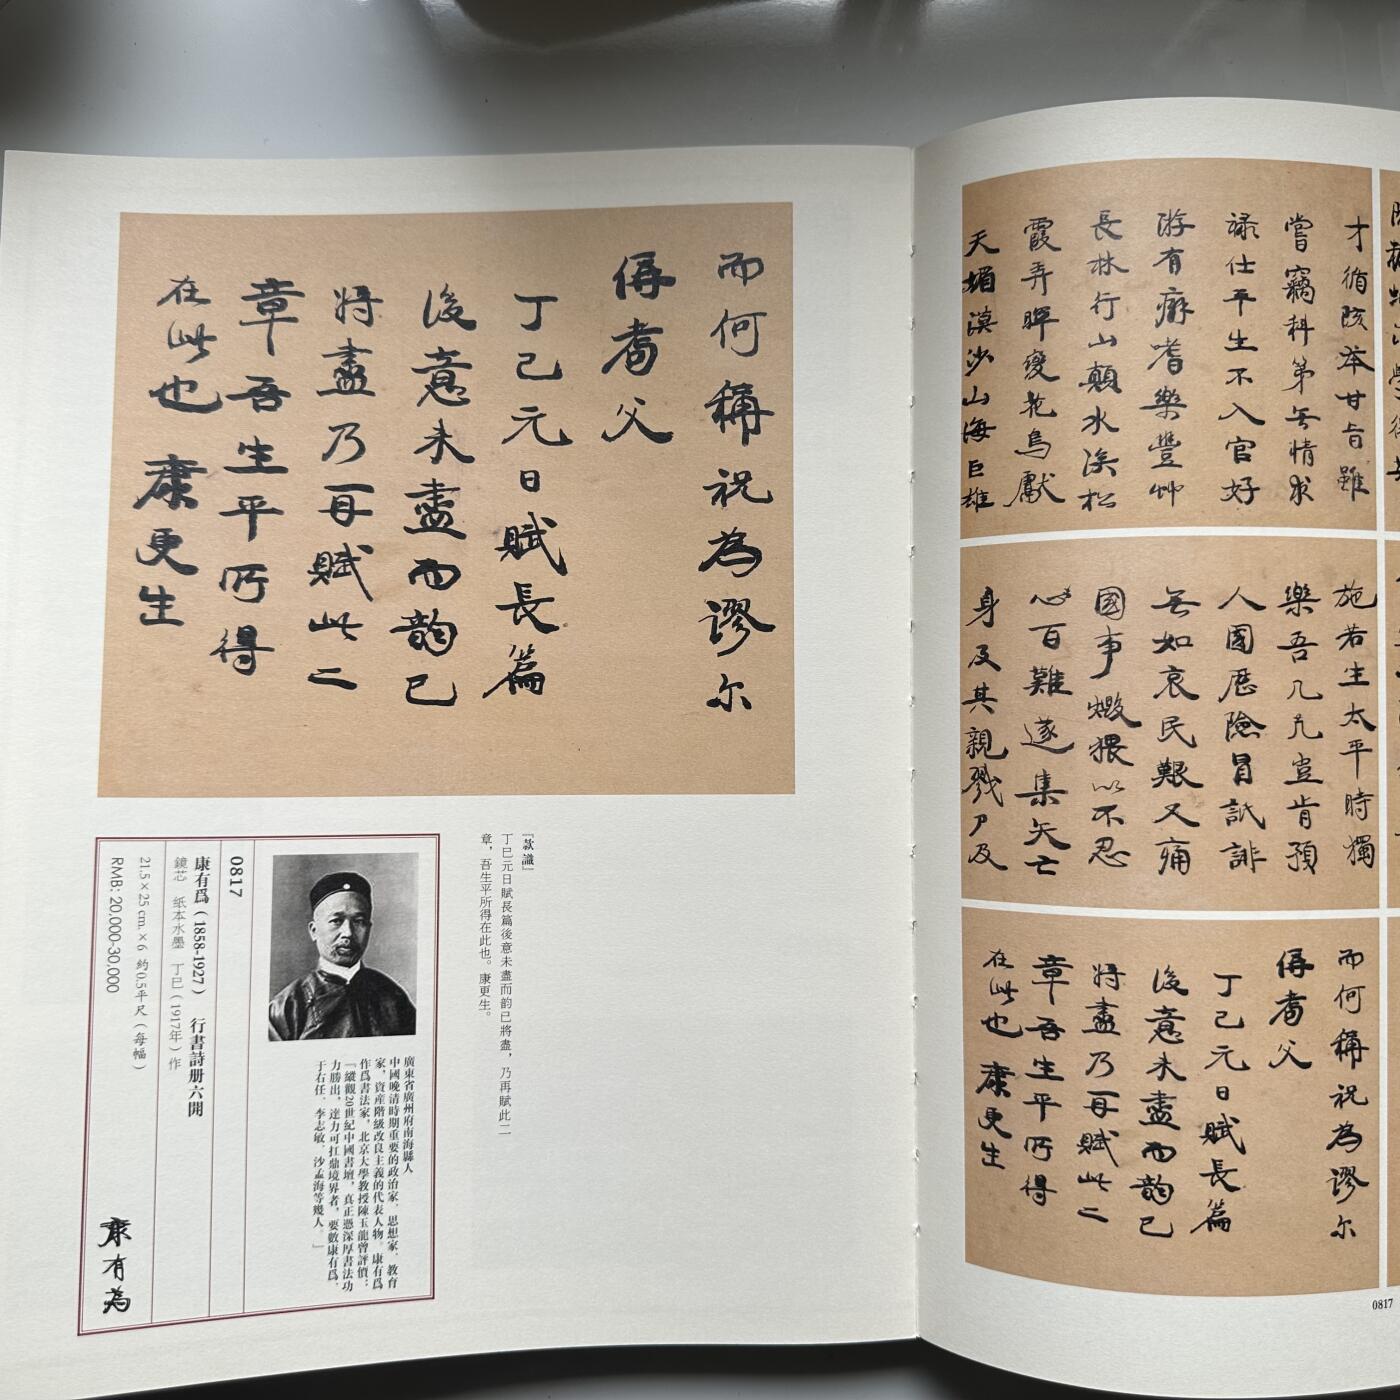 而何稱祝為謬尔
侢耈父
丁己元日賦長篇
後意未盡而韵已
将盡乃再賦此二
章吾生平所得
在此也 康更生
『款識』
丁巳元日賦長篇後意未盡而韵已將盡，乃再賦此二
章，吾生平所得在此也。康更生。
廣東省廣州府南海縣人
中國晚清時期重要的政治家、思想家、教育
家，資產階級改良主義的代表人物。康有爲
作爲書法家，北京大學教授陳玉龍曾評價：
「縱觀20世紀中國書壇，真正憑深厚書法功
力勝出，達力可扛鼎境界者，要數康有爲、
于右任、李志敏、沙孟海等幾人。」
0817
康有爲（1858-1927） 行書詩册六開
鏡芯 紙本水墨 丁巳（1917年）作
21.5×25 cm.×6 約0.5平尺（每幅）
RMB: 20,000-30,000
康有為
才循陔荅甘旨雖
嘗竊科第無情求
禄仕平生不入官好
游有癖嗜樂豐艸
長林行山顛水涘松
霞弄暉變花鳥獻
天堋漠沙山海巨雄
施若生太平時獨
樂吾几几豈肯預
人國歷險冒訧誹
無如哀民艱又痛
國事燬猥以不忍
心百難遂集矢亡
身及其親戮尸及
而何稱祝為謬尔
侢耈父
丁己元日賦長篇
後意未盡而韵已
将盡乃再賦此二
章吾生平所得
在此也 康更生
0817